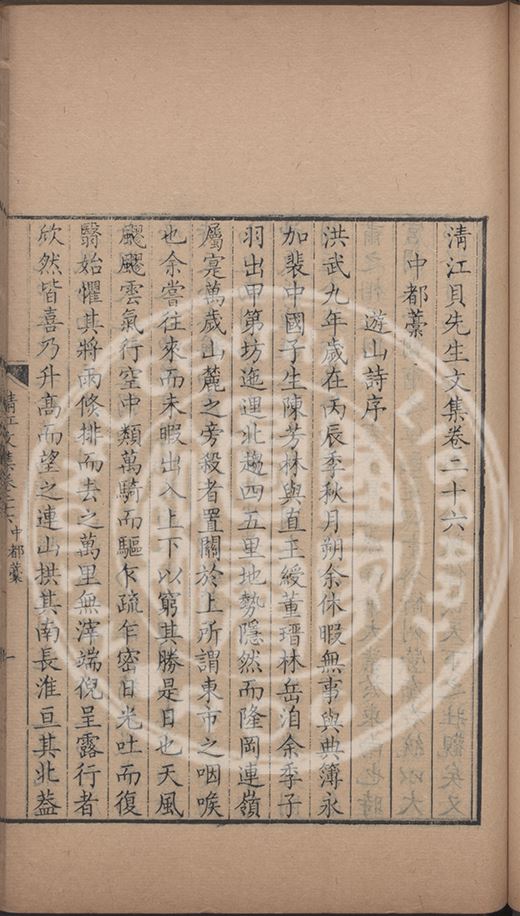 清江貝先生文集卷二十六
中都藁
遊山詩序
洪武九年歲在丙辰季秋月朔余休暇無事與典簿永
加裴中國子生陳芳林與直王綬董瑨林岳洎余季子
羽出甲第坊迤邐北趨四五里地勢隱然而隆岡連嶺
屬寔萬歲山麓之旁殺者置關於上所謂東市之咽喉
也余嘗往來而未暇出入上下以窮其勝是日也天風
颸颸雲氣行空中類萬騎而驅乍疏乍密日光吐而復
翳始懼其將雨倏排而去之萬里無滓端倪呈露行者
欣然皆喜乃升高而望之連山拱其南長淮亘其北葢
清江文集卷二十六 中都藁 一